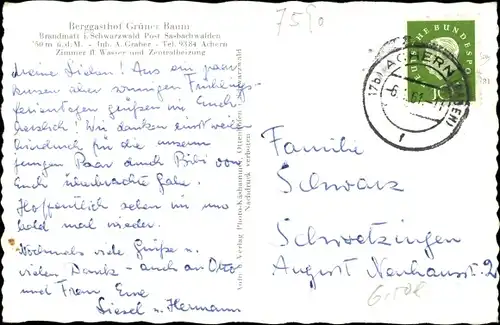 Berggasthof Grüner Baum
Brandmatt i. Schwarzwald Post Sasbachwalden
750 m ü.d.M. - Inh. A. Graber - Tel. 9384 Achern
Zimmer fl. Wasser und Zentralheizung
75/0
Meine Lieben! Aus ein paar
kurzen aber sonnigen Frühlings-
ferientagen grüßen wir Euch
herzlich! Wir danken einstweilen
für die unserem
jungen Paar durch Bibi von
Euch überbrachte Gabe.
Hoffentlich sehen wir uns
bald mal wieder.
Nochmals viele Grüße u.
vielen Dank - auch an Otto
und Frau, Eure
Liesel u. Hermann
Verlag Photo-Kashammer, Ottenhöfen/Schwarzwald
Nachdruck verboten
DEUTSCHE BUNDESPOST
10
(17b) ACHERN (BADEN)
Familie
Schwarz
Schwetzingen
August Neuhausstr. 2